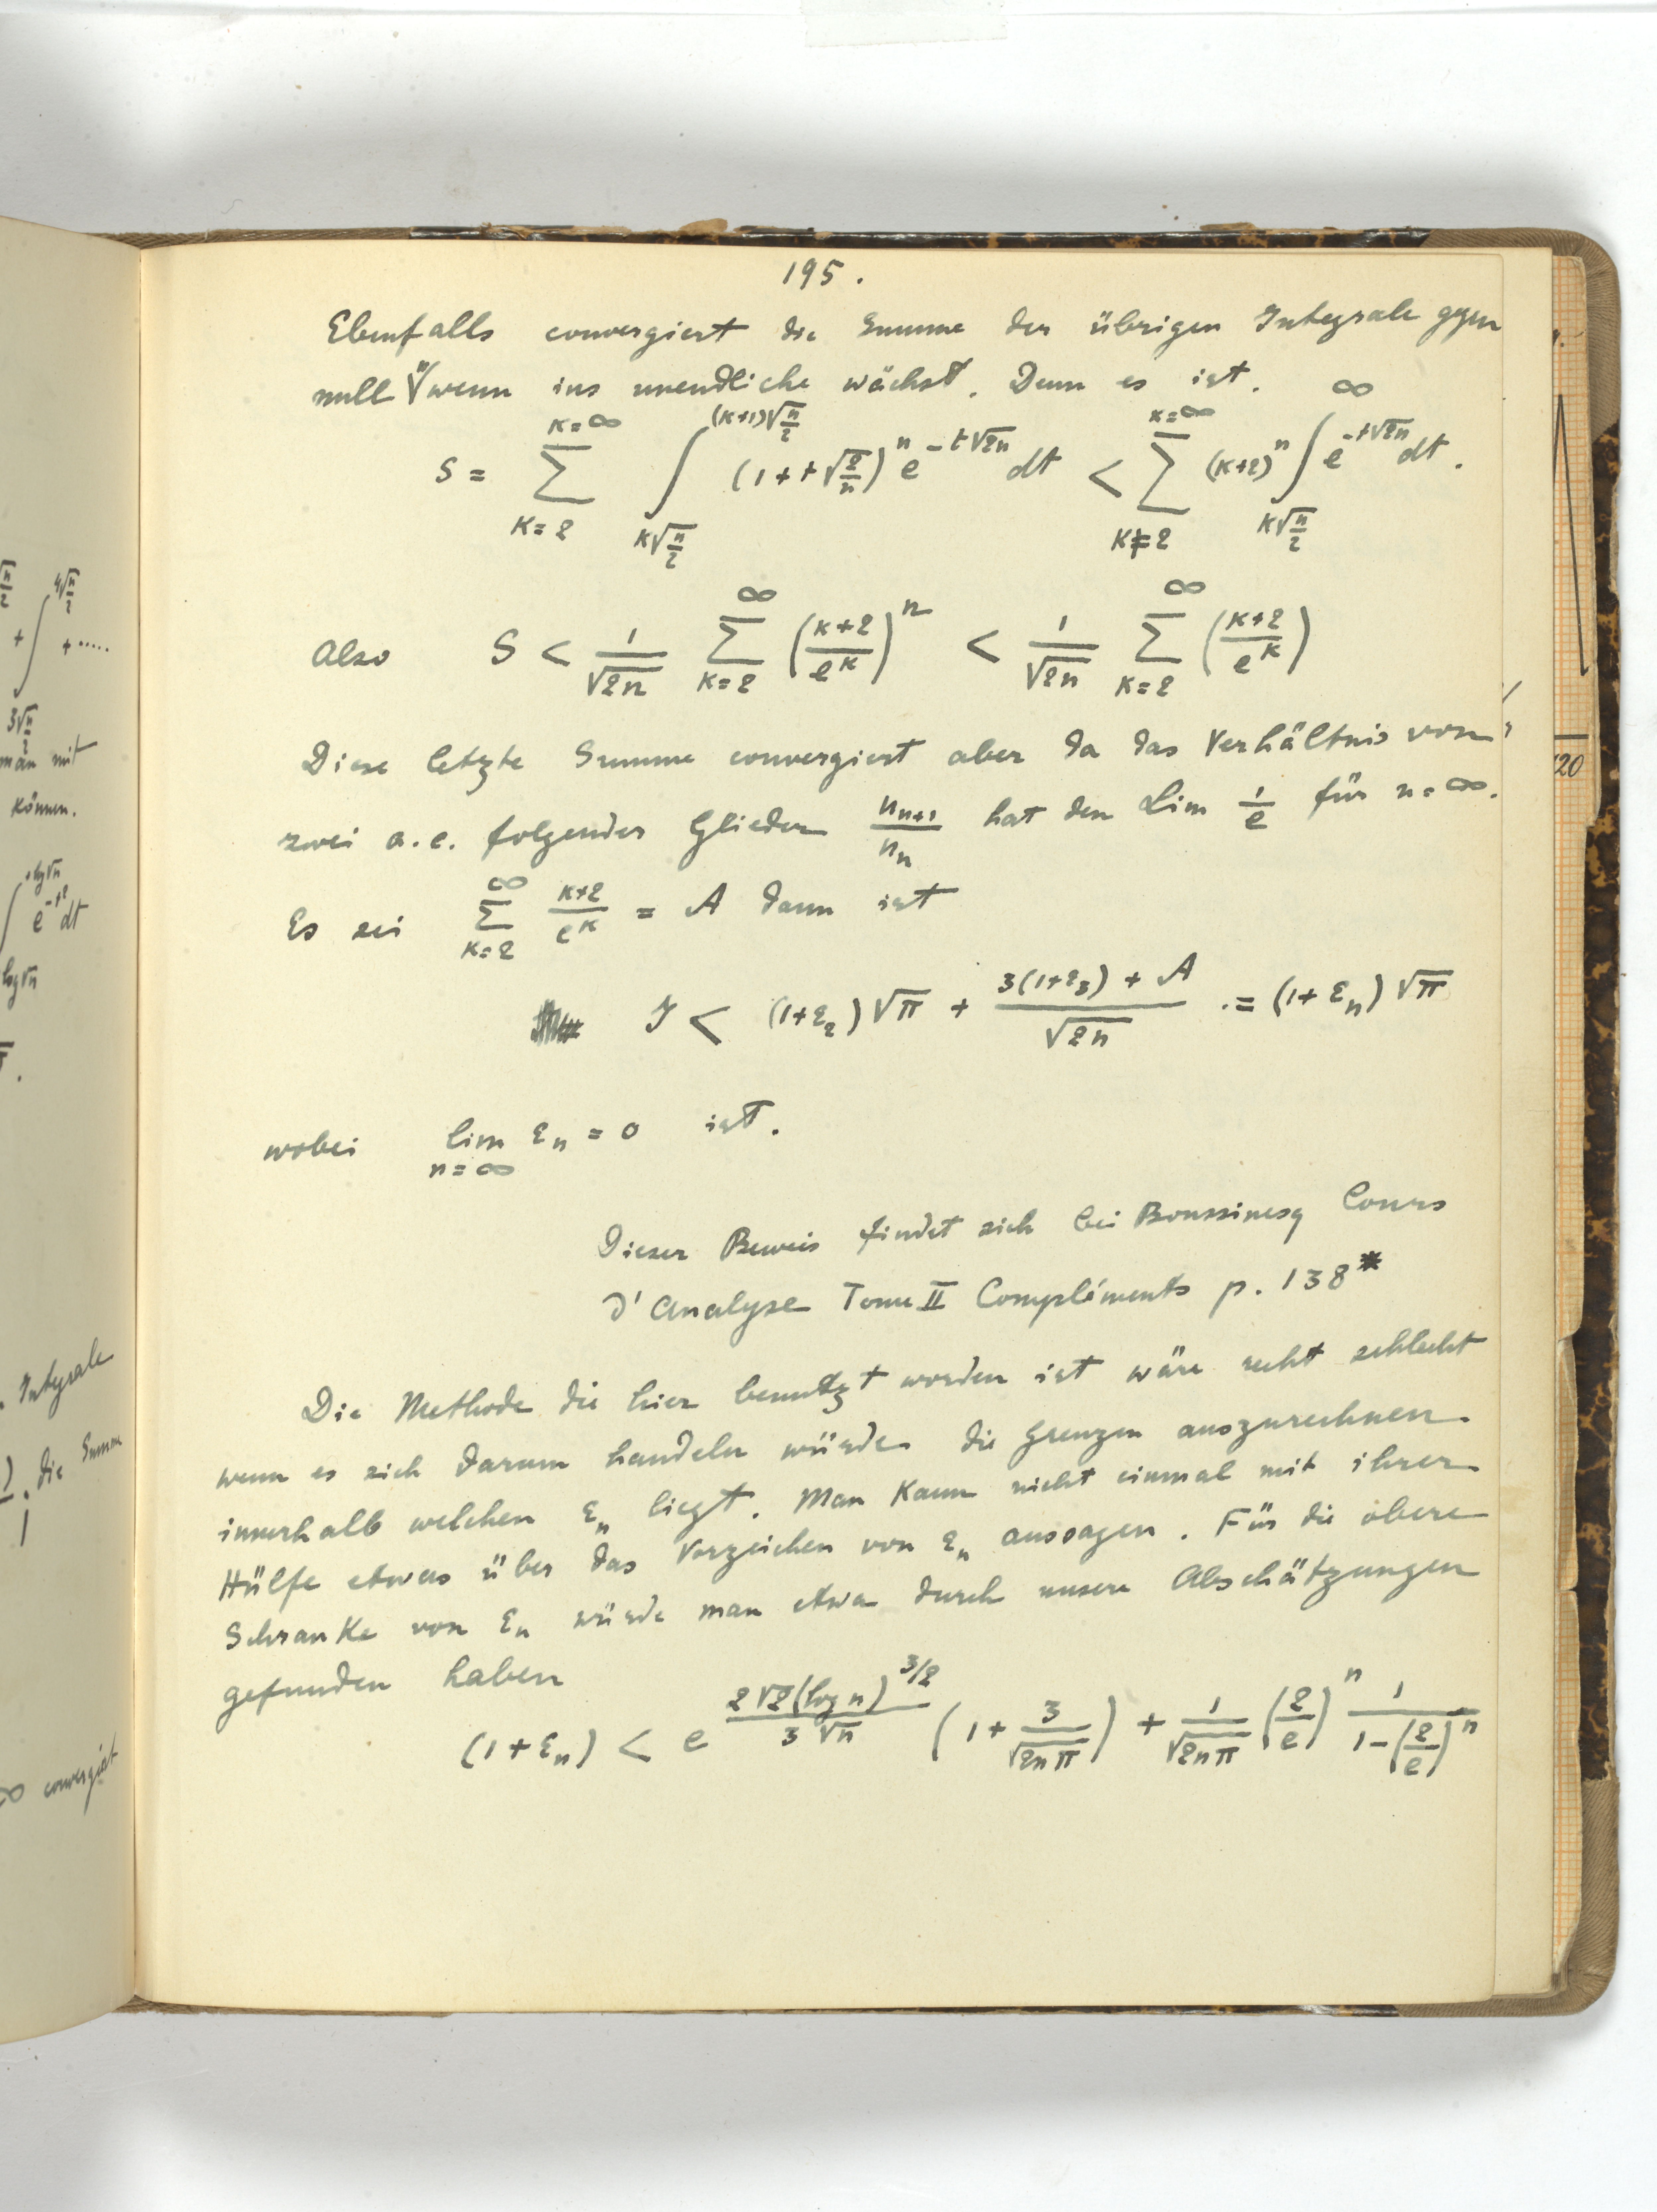 195.
Ebenfalls convergiert die Summe der übrigen Integrale gegen
null n wenn ins unendliche wächst. Denn es ist.
S = \sum_{K=2}^{K=∞} \int_{K\sqrt{\frac{n}{2}}}^{(K+1)\sqrt{\frac{n}{2}}} (1+t\sqrt{\frac{2}{n}})^n e^{-t\sqrt{2n}} dt < \sum_{K=2}^{K=∞} (K+2)^n \int_{K\sqrt{\frac{n}{2}}}^{∞} e^{-t\sqrt{2n}} dt.
Also S < \frac{1}{\sqrt{2n}} \sum_{K=2}^{∞} (\frac{K+2}{e^K})^n < \frac{1}{\sqrt{2n}} \sum_{K=2}^{∞} (\frac{K+2}{e^K})
Diese letzte Summe convergiert aber da das Verhältnis von
zwei a. e. folgender Glieder \frac{u_{n+1}}{u_n} hat den Lim \frac{1}{e} für n=∞.
Es sei \sum_{K=2}^{∞} \frac{K+2}{e^K} = A dann ist
J < (1+ε_2)\sqrt{π} + \frac{3(1+ε_3)+A}{\sqrt{2n}} .= (1+ε_n)\sqrt{π}
wobei \lim_{n=∞} ε_n = 0 ist.
Dieser Beweis findet sich bei Boussinesq Cours
d'Analyse Tome II Compléments p. 138*
Die Methode die hier benutzt worden ist wäre recht schlecht
wenn es sich darum handeln würde die Grenzen auszurechnen
innerhalb welchen ε_n liegt. Man kann nicht einmal mit ihrer
Hülfe etwas über das Vorzeichen von ε_n aussagen. Für die obere
Schranke von ε_n würde man etwa durch unsere Abschätzungen
gefunden haben
(1+ε_n) < e^{\frac{2\sqrt{2}(log n)^{3/2}}{3\sqrt{n}}} (1+\frac{3}{\sqrt{2nπ}}) + \frac{1}{\sqrt{2nπ}} (\frac{2}{e})^n \frac{1}{1-(\frac{2}{e})^n}
man mit
können.
Integrale
die Summe
∞ convergiert
120